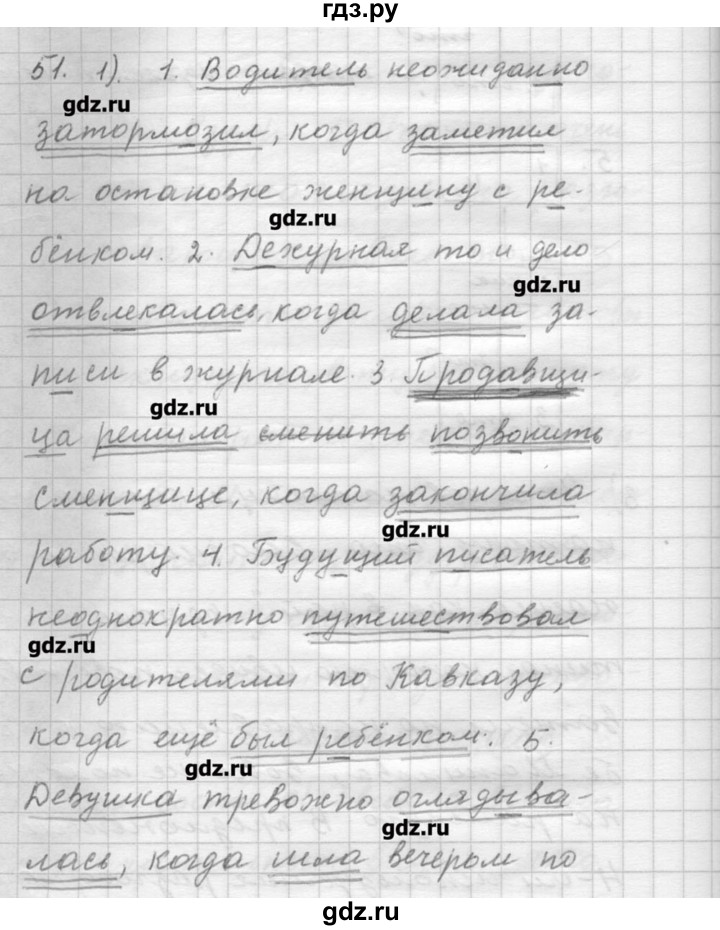 гдз.ру
51. 1). 1. Водитель неожиданно
gdz.ru
затормозил, когда заметил
на остановке женщину с ре-
gdz.ru
бёнком. 2. Дежурная то и дело
gdz.ru
отвлекалась, когда делала за-
писи в журнале. 3 Продавщи-
gdz.ru
ца решила сменить позвонить
сменщице, когда закончила
gdz.ru
работу. 4. Будущий писатель
неоднократно путешествовал
gdz.ru
с родителями по Кавказу,
когда ещё был ребёнком. 5.
gdz.ru
Девушка тревожно оглядыва-
gdz.ru
лась, когда шла вечером по
gdz.ru